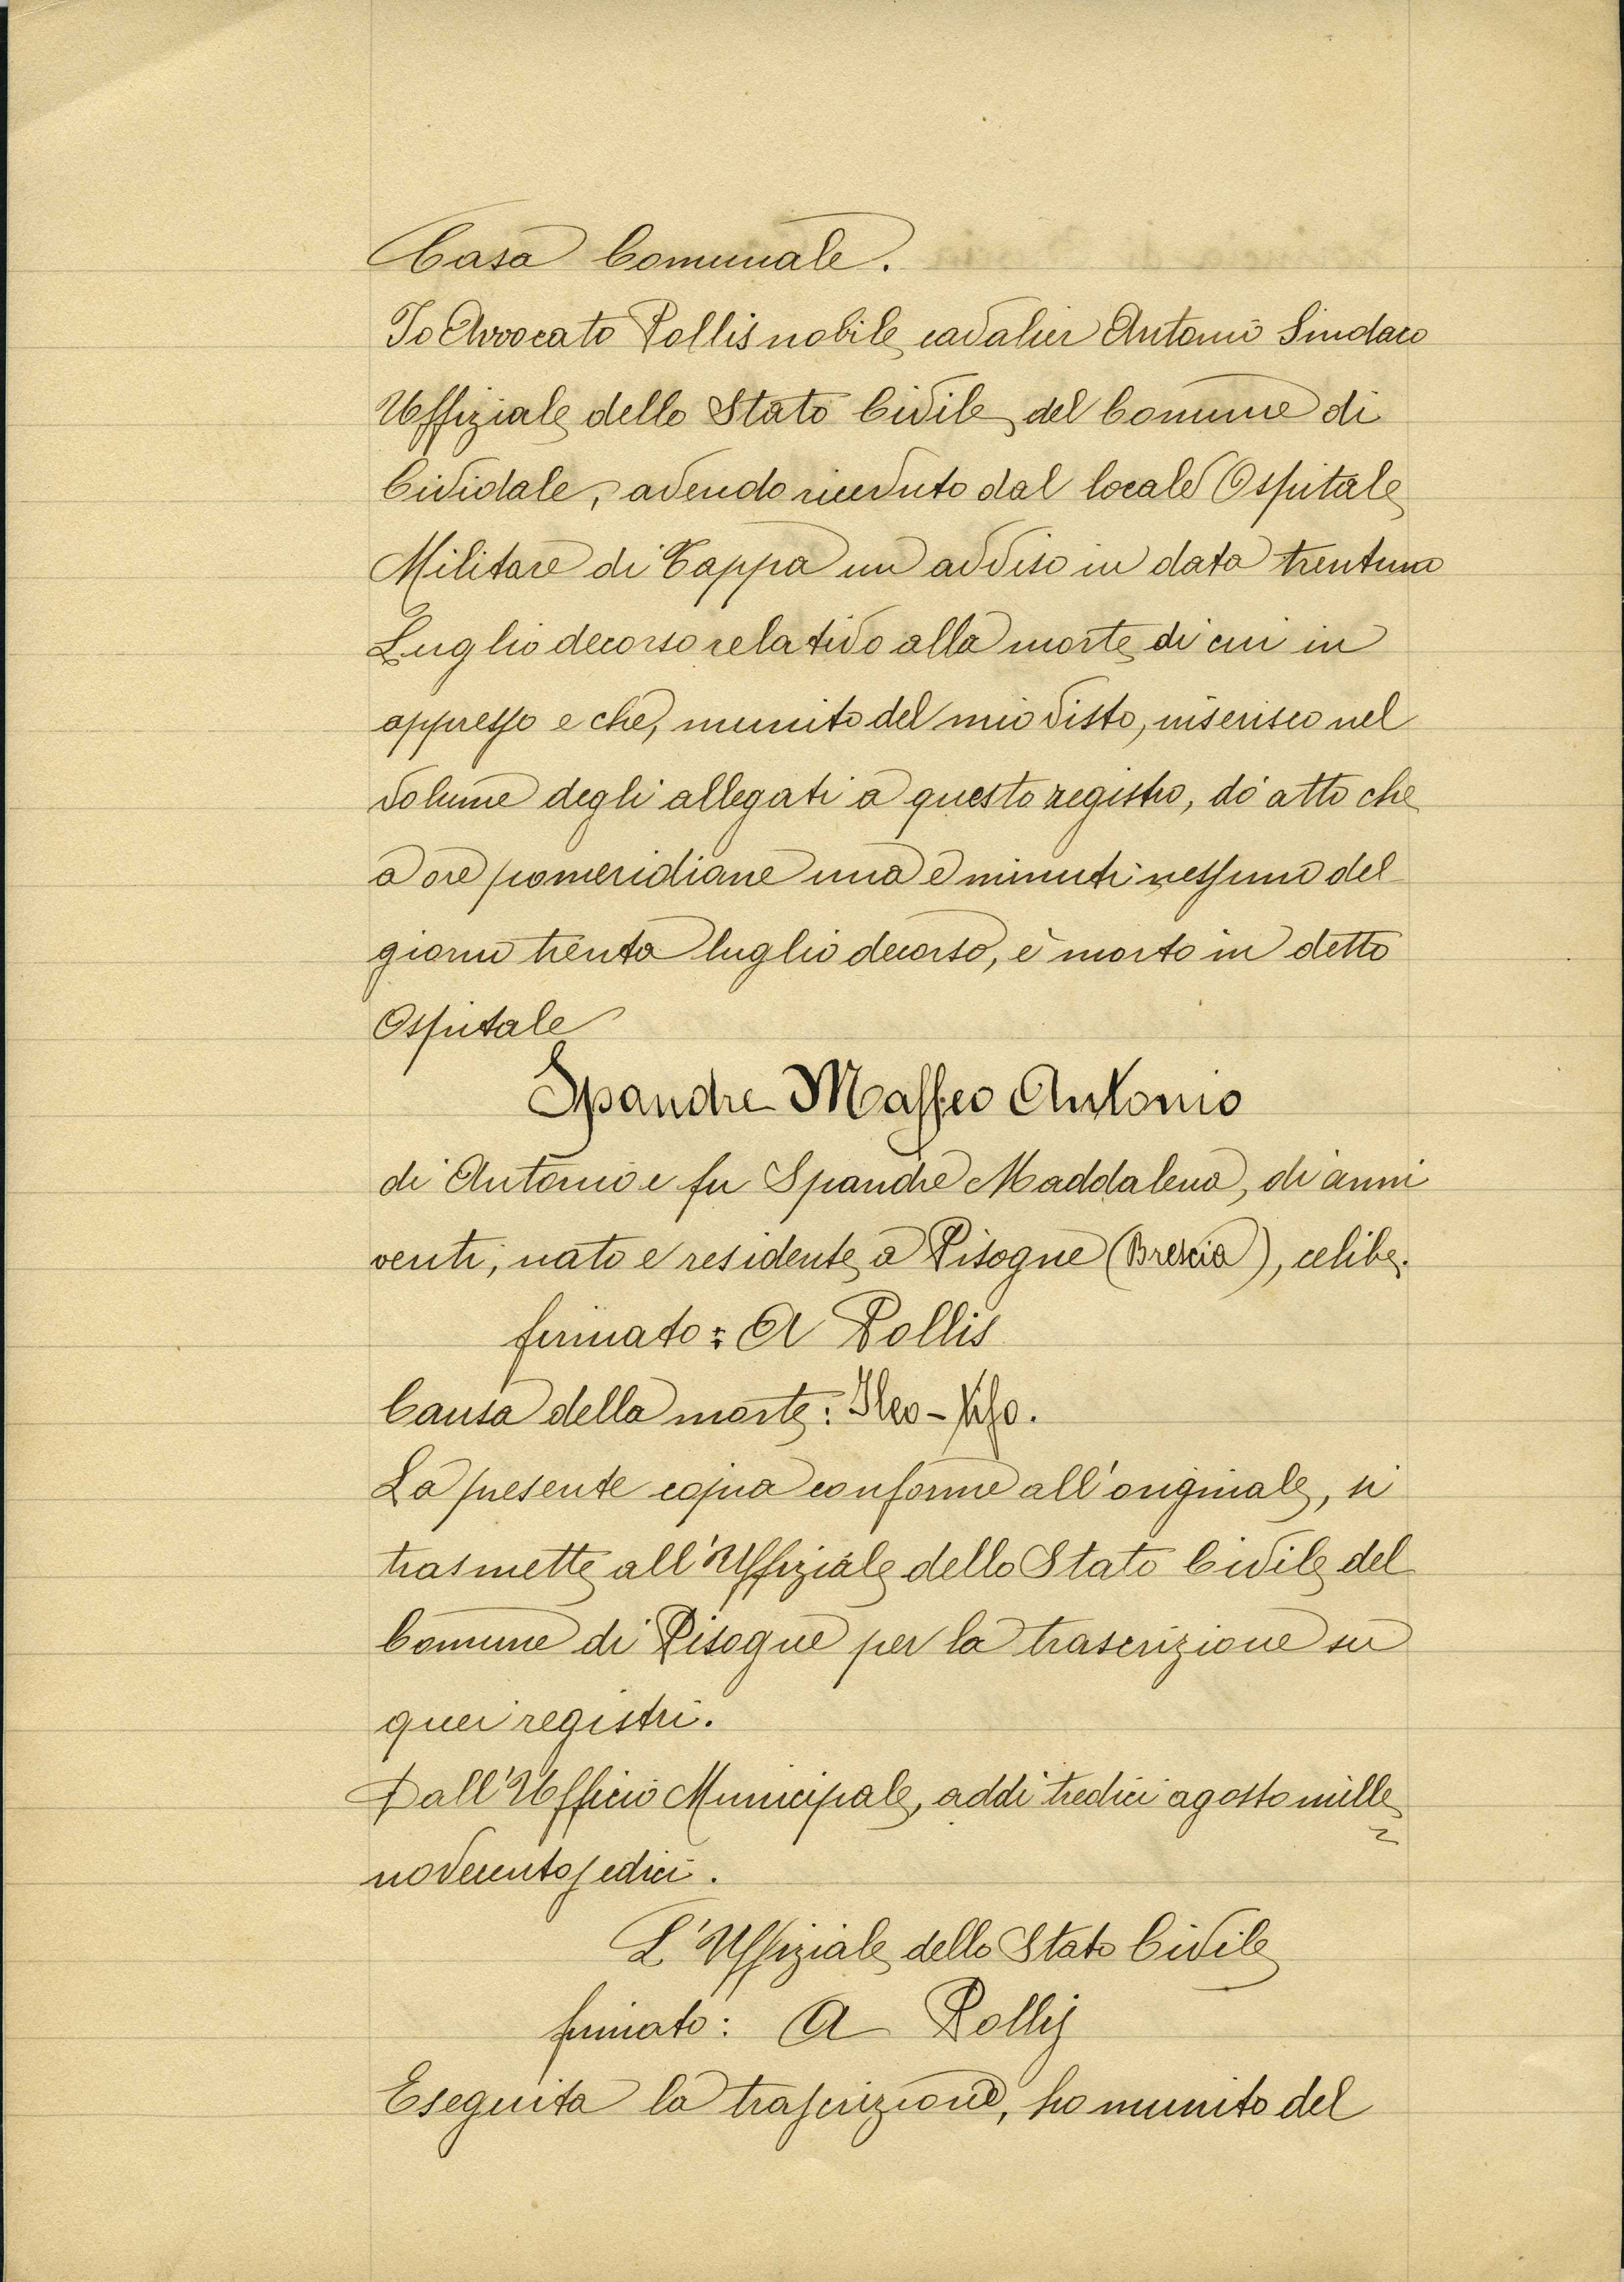 Casa Comunale.
Io Avvocato Pollis nobile cavalier Antonio Sindaco
Uffiziale dello Stato Civile del Comune di
Cividale, avendo ricevuto dal locale Ospitale
Militare di Tappa un avviso in data trentuno
Luglio decorso relativo alla morte di cui in
appresso e che, munito del mio visto, inserisco nel
volume degli allegati a questo registro, dò atto che
a ore pomeridiane una e minuti nessuno del
giorno trenta luglio decorso, è morto in detto
Ospitale
Spandre Maffeo Antonio
di Antonio e fu Spandre Maddalena, di anni
venti, nato e residente a Pisogne (Brescia), celibe.
firmato: A Pollis
Causa della morte: Ileo-tifo.
La presente copia conforme all'originale, si
trasmette all'Uffiziale dello Stato Civile del
Comune di Pisogne per la trascrizione su
quei registri.
Dall'Ufficio Municipale, addì tredici agosto mille
novecentosedici.
L'Uffiziale dello Stato Civile
firmato: A Pollis
Eseguita la trascrizione, ho munito del